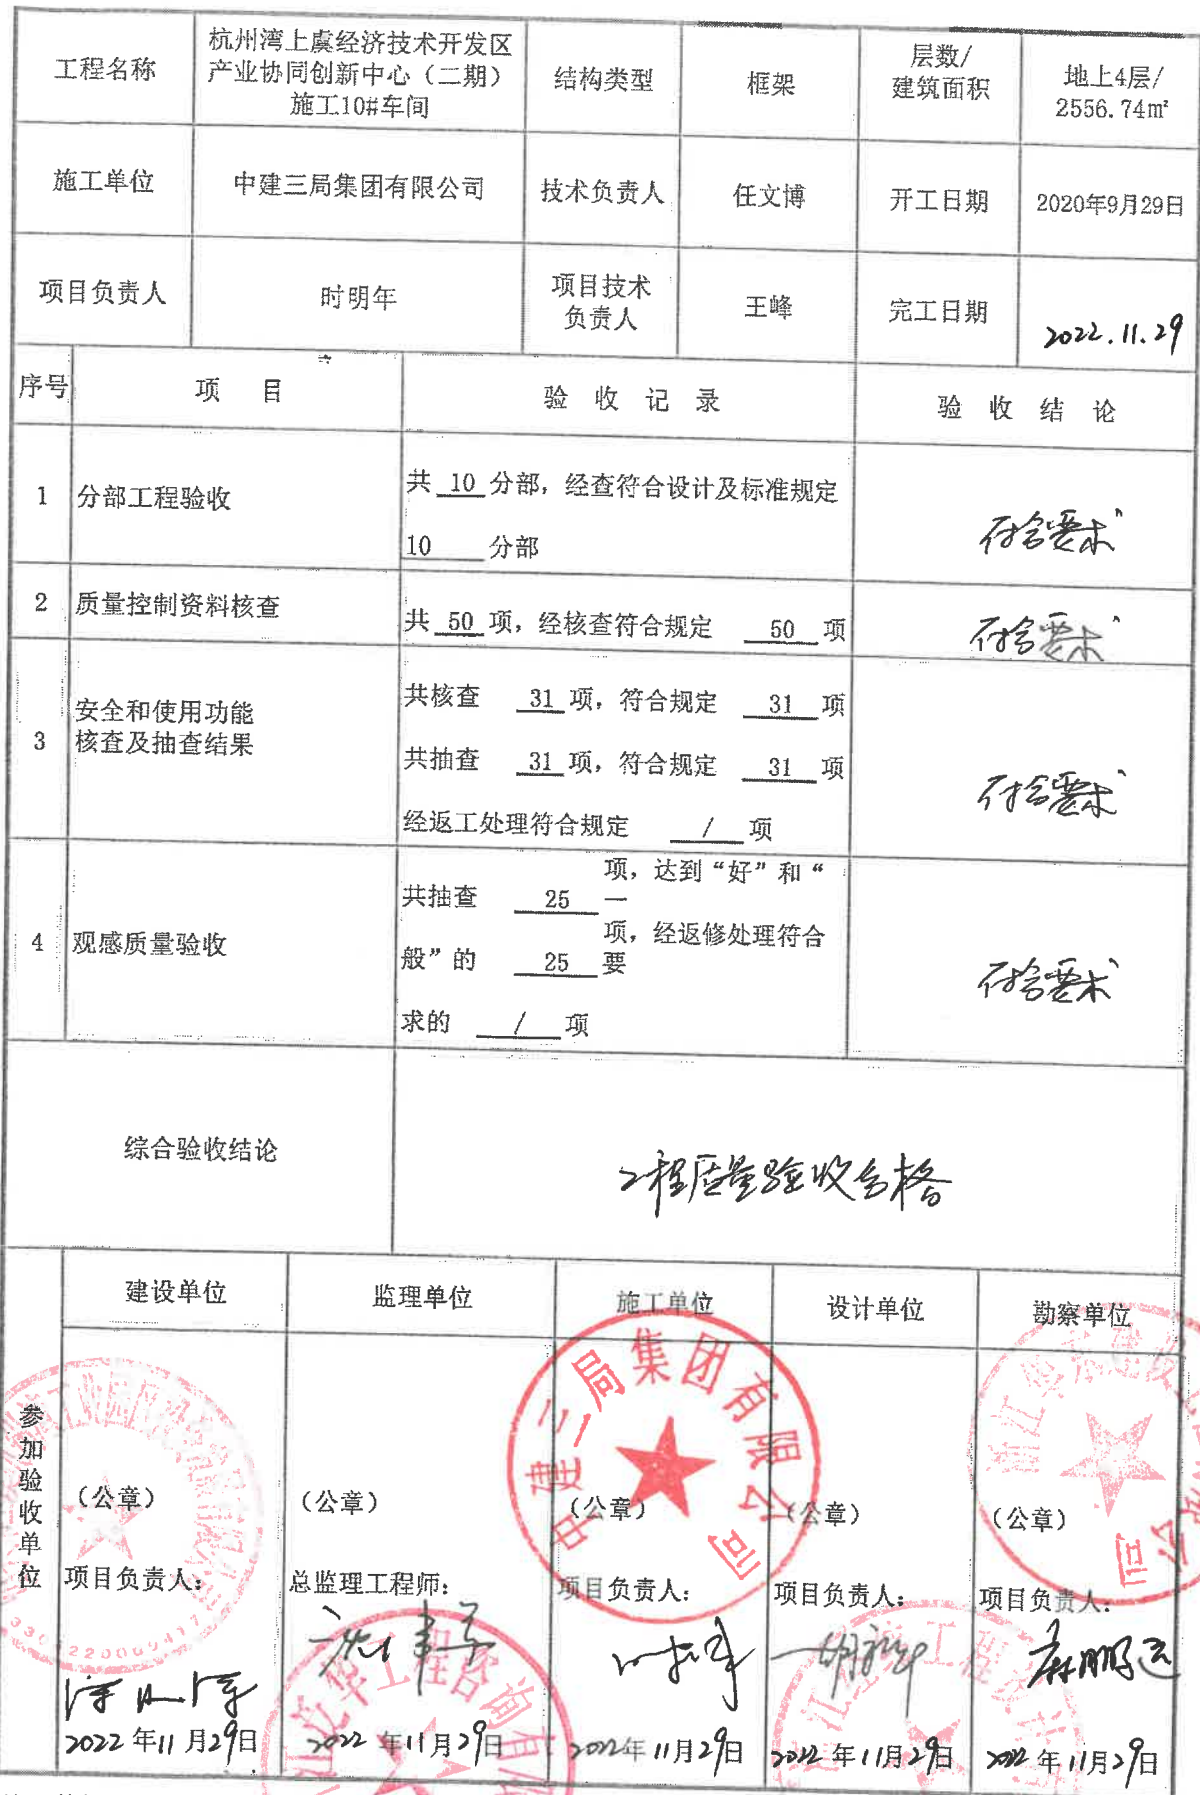 工程名称
杭州湾上虞经济技术开发区
产业协同创新中心（二期）
施工10#车间
结构类型
框架
层数/
建筑面积
地上4层/
2556.74㎡
施工单位
中建三局集团有限公司
技术负责人
任文博
开工日期
2020年9月29日
项目负责人
时明年
项目技术
负责人
王峰
完工日期
2022.11.29
序号
项 目
验 收 记 录
验 收 结 论
1
分部工程验收
共 10 分部，经查符合设计及标准规定
10 分部
符合要求
2
质量控制资料核查
共 50 项，经核查符合规定 50 项
符合要求
3
安全和使用功能
核查及抽查结果
共核查 31 项，符合规定 31 项
共抽查 31 项，符合规定 31 项
经返工处理符合规定 / 项
符合要求
4
观感质量验收
共抽查 25 项，达到“好”和“一
般”的 25 项，经返修处理符合要
求的 / 项
符合要求
综合验收结论
工程质量验收合格
参加验收单位
建设单位
监理单位
施工单位
设计单位
勘察单位
中建三局集团有限公司
（公章）
（公章）
（公章）
（公章）
（公章）
项目负责人：
总监理工程师：
项目负责人：
项目负责人：
项目负责人：
2022年11月29日
2022年11月29日
2022年11月29日
2022年11月29日
2022年11月29日